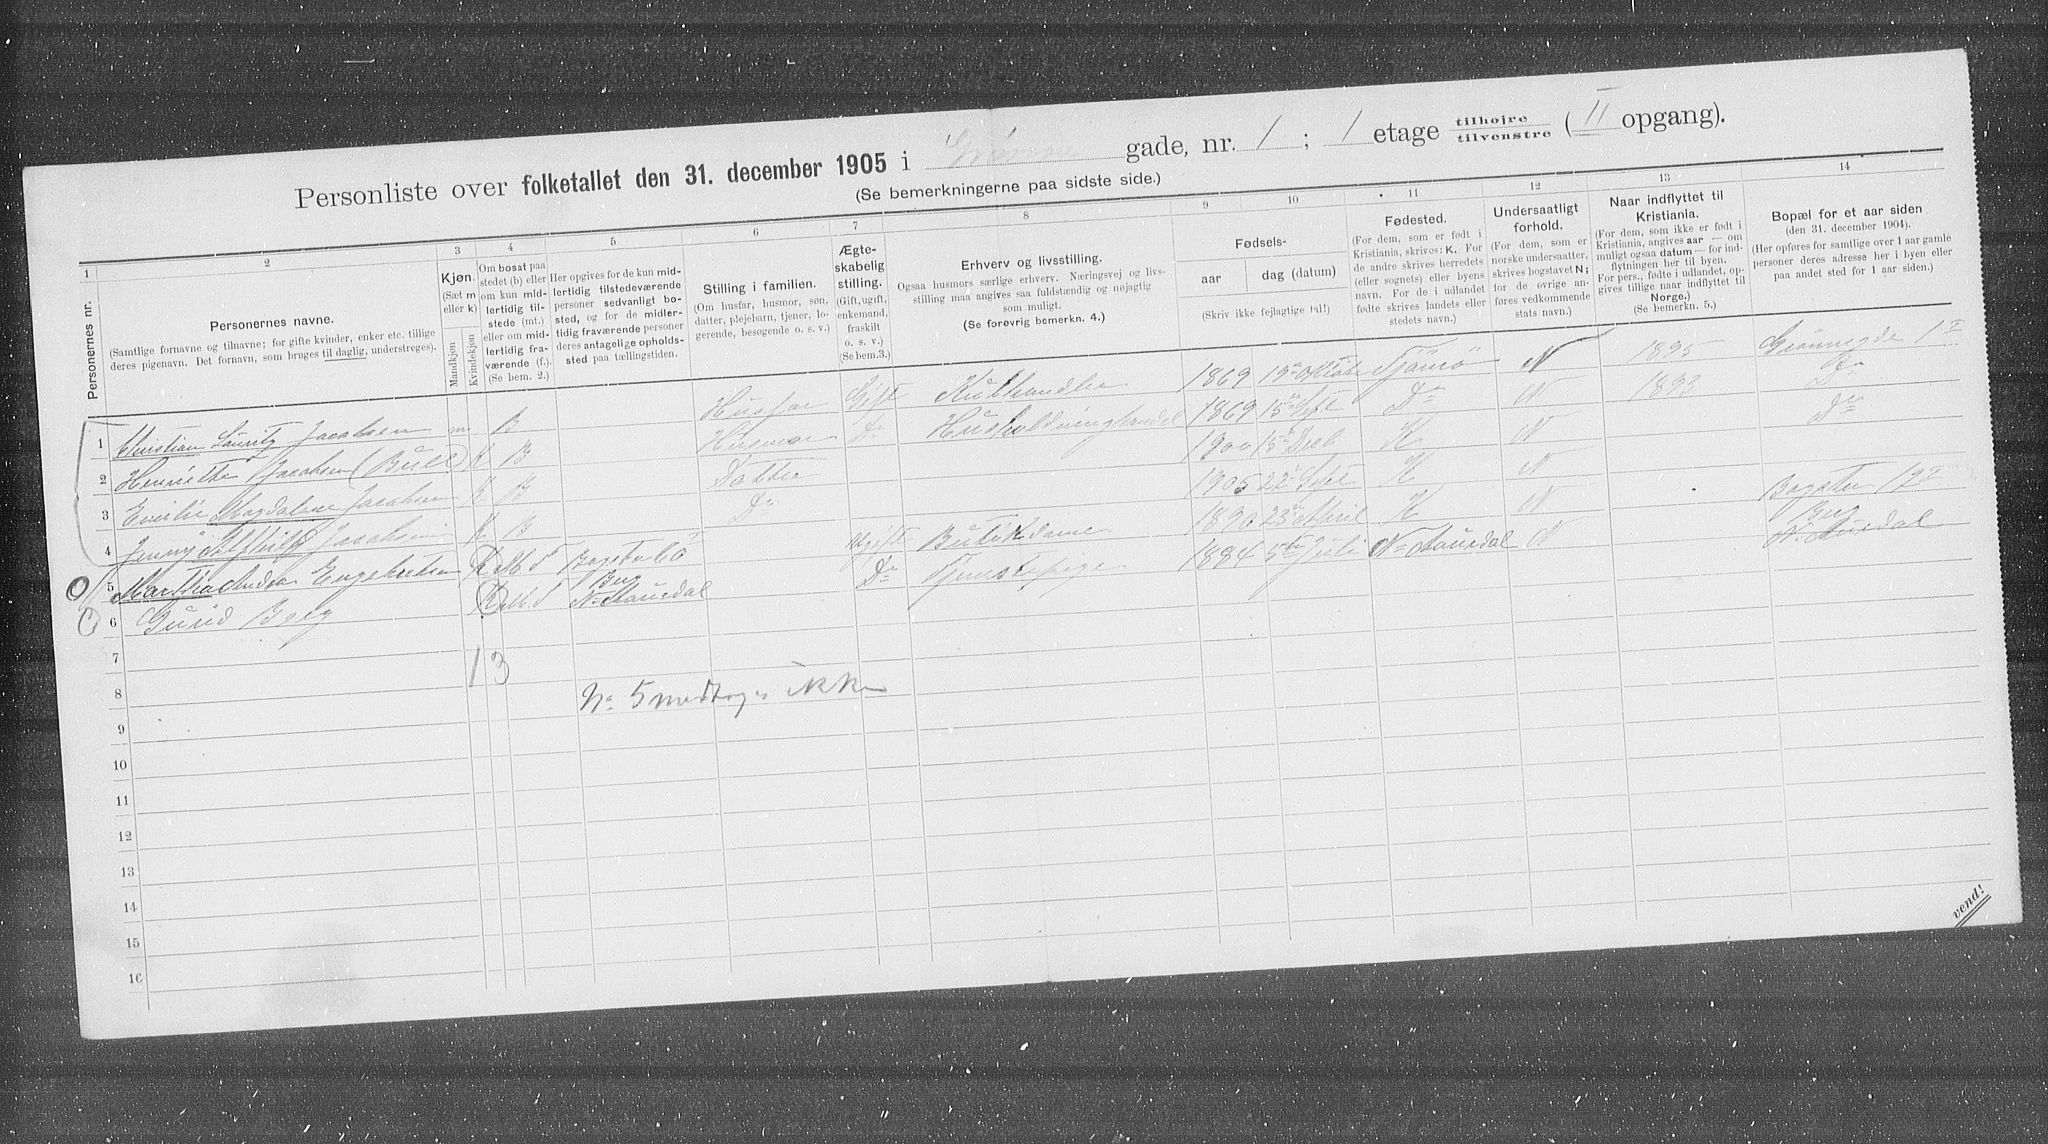 Personliste over folketallet den 31. december 1905 i Grönne gade, nr. 1 ; 1 etage tilhøjre tilvenstre ( II opgang).
(Se bemerkningerne paa sidste side.)
1 2 3 4 5 6 7 8 9 10 11 12 13 14
Personernes nr.
Personernes navne.
(Samtlige fornavne og tilnavne; for gifte kvinder, enker etc. tillige deres pigenavn. Det fornavn, som bruges til daglig, understreges).
Kjøn.
(Sæt m eller k)
Mandkjøn
Kvindekjøn
Om bosat paa stedet (b) eller om kun midlertidig tilstede (mt.) eller om midlertidig fraværende (f.). (Se bem. 2.)
Her opgives for de kun midlertidig tilstedeværende personer sedvanligt bosted, og for de midlertidig fraværende personer deres antagelige opholdssted paa tællingstiden.
Stilling i familien.
(Om husfar, husmor, søn, datter, plejebarn, tjener, logerende, besøgende o. s. v.)
Ægteskabelig stilling.
(Gift, ugift, enkemand, fraskilt o. s. v.)
(Se bem.3.)
Erhverv og livsstilling.
Ogsaa husmors særlige erhverv. Næringsvej og livsstilling maa angives saa fuldstændig og nøjagtig som muligt.
(Se forøvrig bemerkn. 4.)
Fødsels-
aar dag (datum)
(Skriv ikke fejlagtige tal!)
Fødested.
(For dem, som er født i Kristiania, skrives: K. For de andre skrives herredets (eller sognets) eller byens navn. For de i udlandet fødte skrives landets eller stedets navn.)
Undersaatligt forhold.
(For dem, som er norske undersaatter, skrives bogstavet N; for de øvrige anføres vedkommende stats navn.)
Naar indflyttet til Kristiania.
(For dem, som ikke er født i Kristiania, angives aar — om muligt ogsaa datum — for indflytningen her til byen. For pers., fødte i udlandet, opgives tillige naar indflyttet til Norge.)
(Se bemerkn. 5.)
Bopæl for et aar siden
(den 31. december 1904).
(Her opføres for samtlige over 1 aar gamle personer deres adresse her i byen eller paa andet sted for 1 aar siden.)
1 Christian Lauritz Jacobsen m B Husfar Gift 1869 Tjömö N 1895
2 Henriette Jacobsen (Bull) K B Husmor Do Husholdningshandel 1869 15 Sept Do N 1893 Do
3 Emilie Magdalene Jacobsen K B Datter 1900 15 Desb K N Do
4 Jenny Jacobsen K B Do 1905 22 Sept K N
5 Engebretsen K M. T Ugift Butikdame 1890 23 April K N
6 Gurid Berg K M. T N. Aurdal Do Tjenestepige 1884 5te Juli N. Aurdal N N. Aurdal
7
13
8 No 5 medtages ikke
9
10
11
12
13
14
15
16
vend!